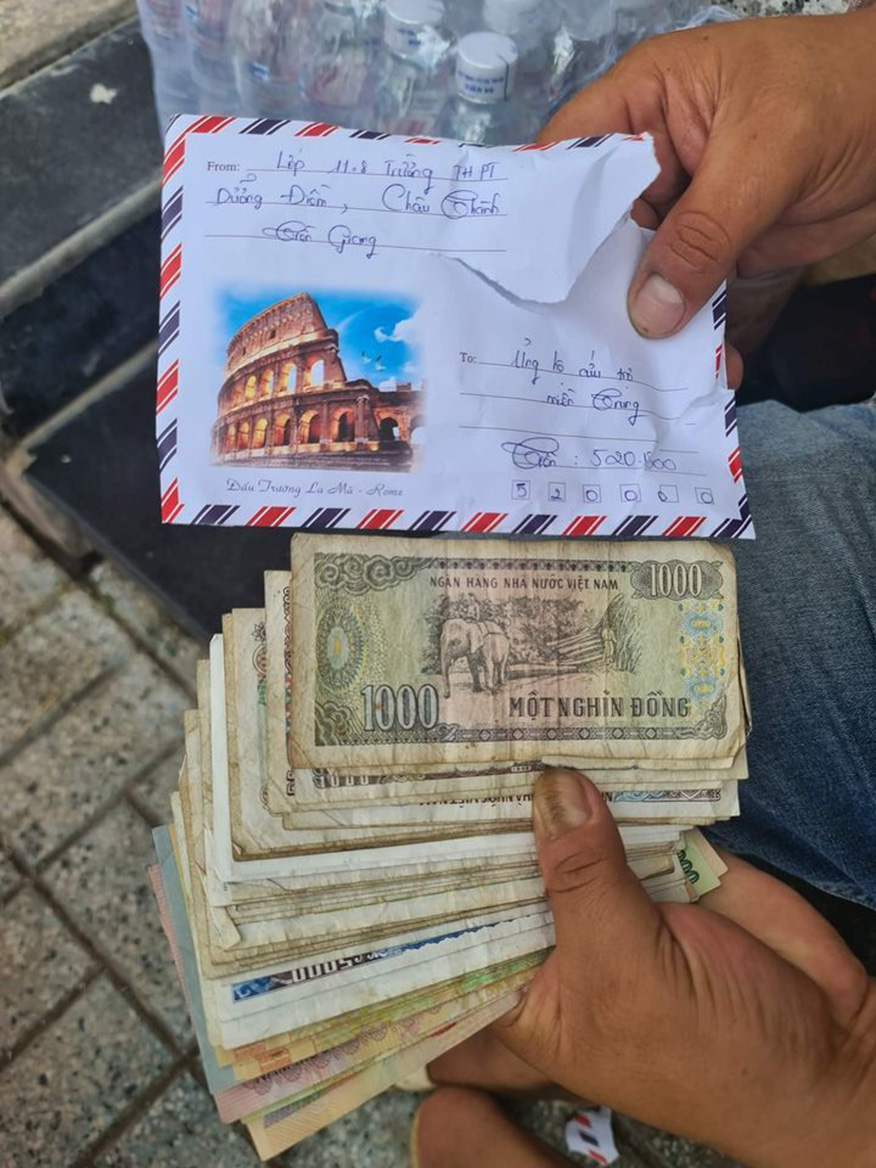 From: Lớp 11.8 Trường THPT
Dưỡng Điềm, Châu Thành
Tiền Giang
To: Ủng hộ cứu trợ
miền Trung
Tiền : 5020.000
5 2 0 0 0 0 0
Đấu Trường La Mã - Rome
NGÂN HÀNG NHÀ NƯỚC VIỆT NAM
1000
1000
MỘT NGHÌN ĐỒNG
1000
5000